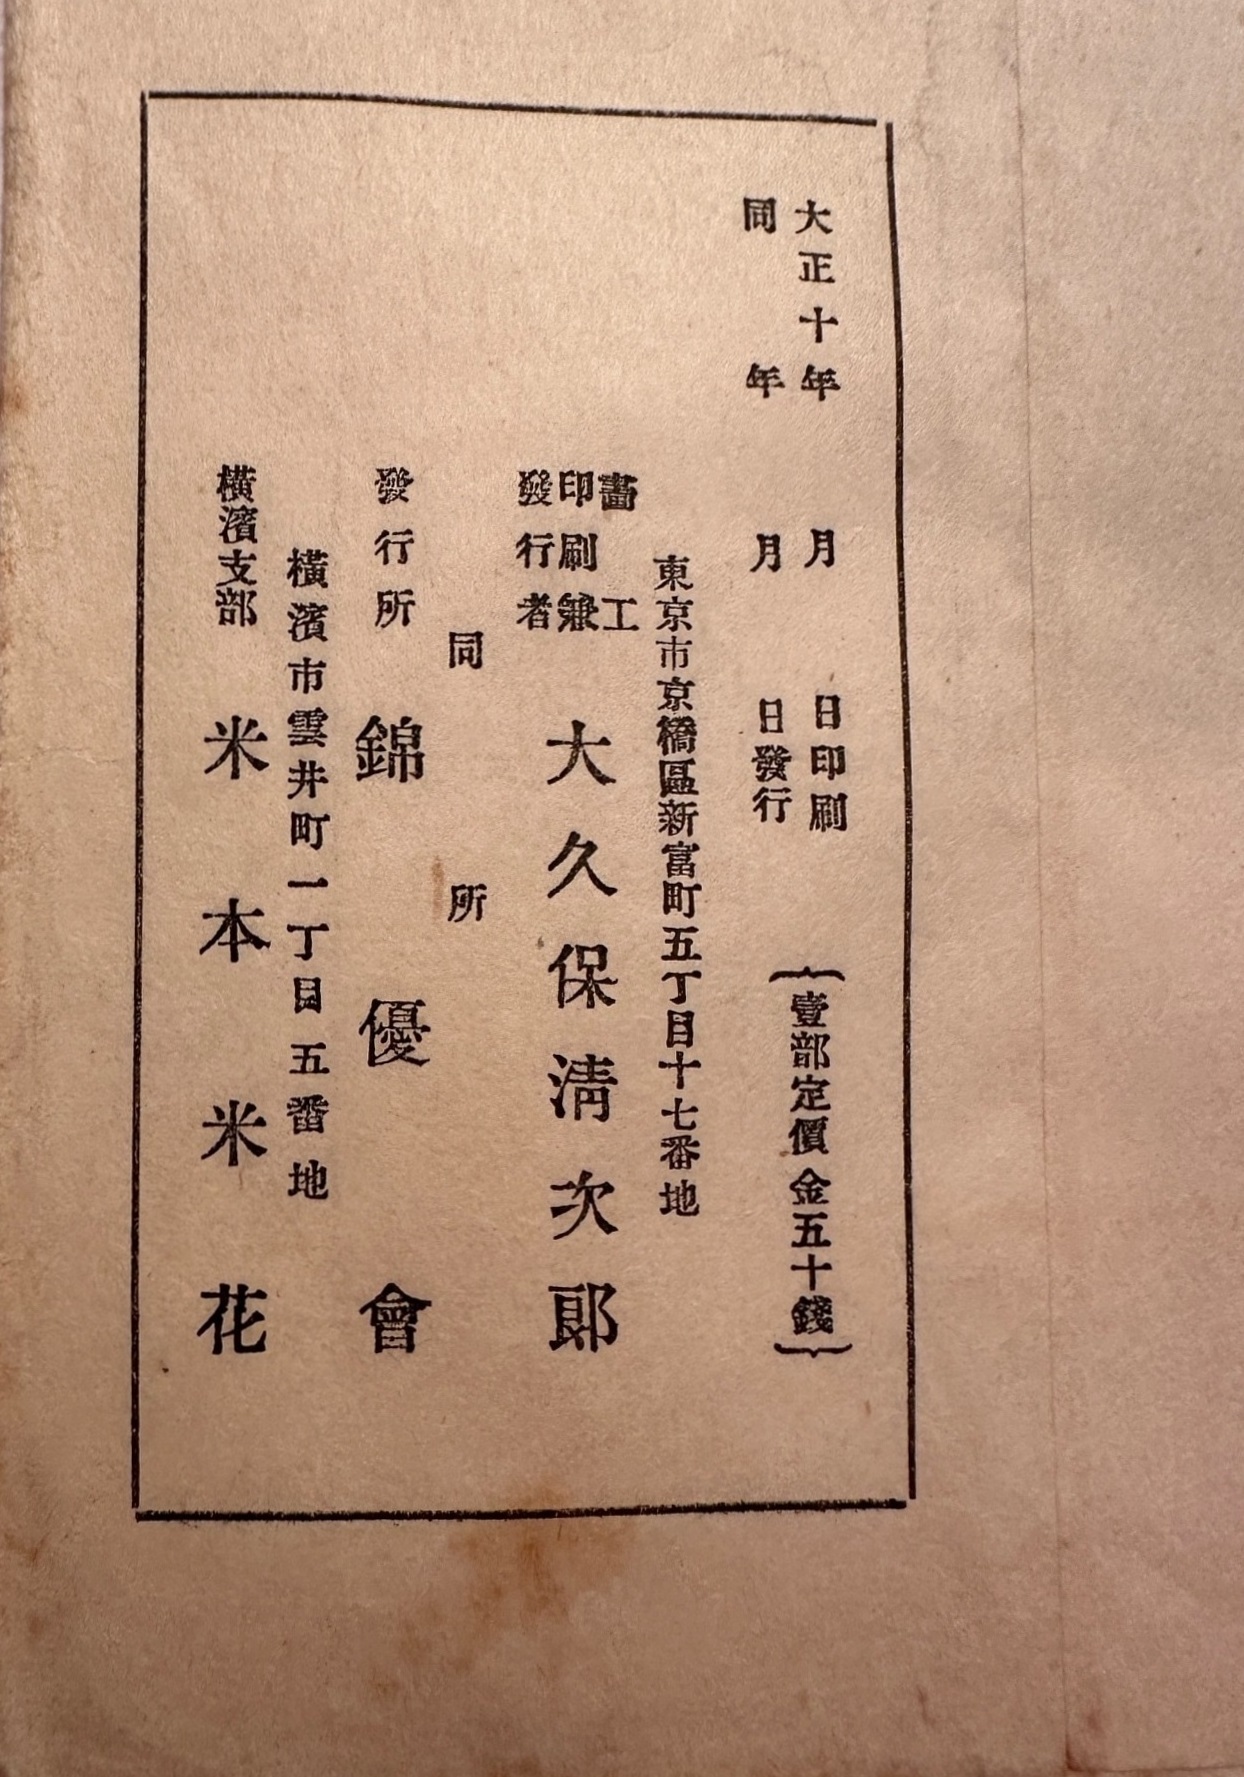 大正十年　月　日印刷
同　年　月　日發行
{壹部定價金五十錢}
東京市京橋區新富町五丁目十七番地
畵工
印刷兼
發行者
大久保淸次郞
同所
發行所　錦優會
橫濱市雲井町一丁目五番地
橫濱支部　米本米花